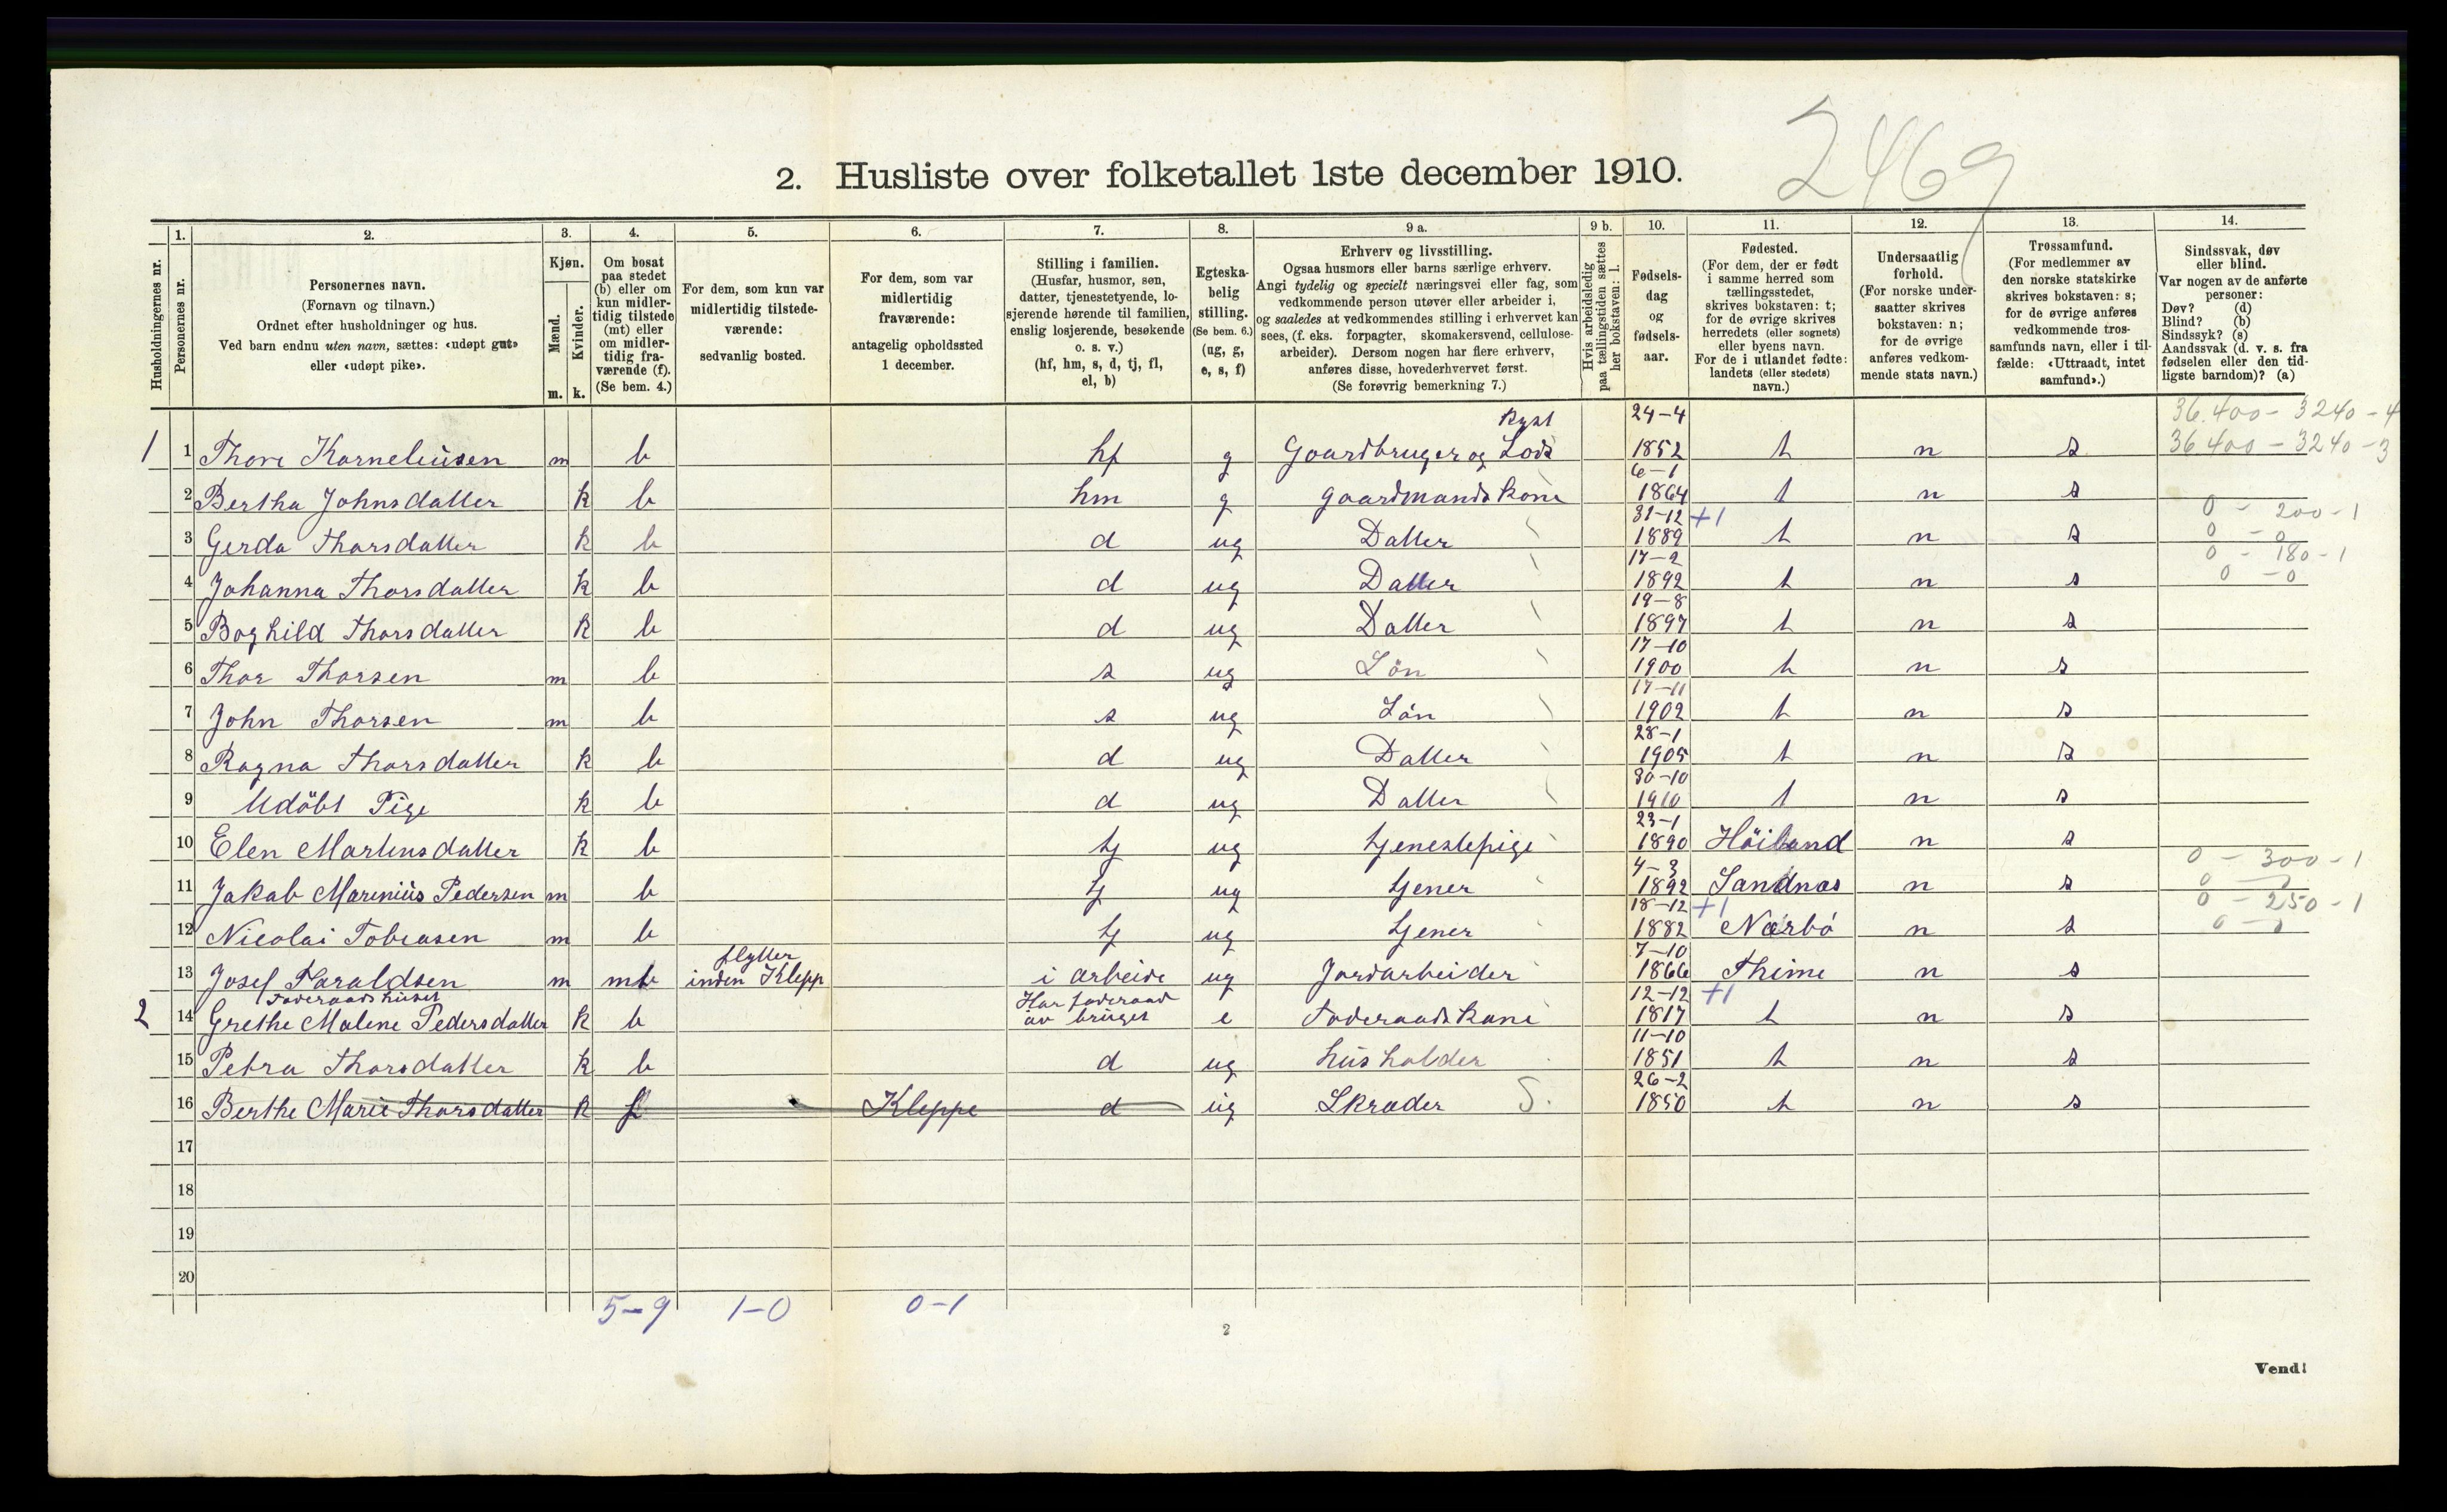 2469
2. Husliste over folketallet 1ste december 1910.
Husholdningernes nr.
1. Personernes nr.
2. Personernes navn.
(Fornavn og tilnavn.)
Ordnet efter husholdninger og hus.
Ved barn endnu uten navn, sættes: «udøpt gut»
eller «udøpt pike».
3. Kjøn.
Mænd. Kvinder.
m. k.
4. Om bosat
paa stedet
(b) eller om
kun midler-
tidig tilstede
(mt) eller
om midler-
tidig fra-
værende (f).
(Se bem. 4.)
5. For dem, som kun var
midlertidig tilstede-
værende:
sedvanlig bosted.
6. For dem, som var
midlertidig
fraværende:
antagelig opholdssted
1 december.
7. Stilling i familien.
(Husfar, husmor, søn,
datter, tjenestetyende, lo-
sjerende hørende til familien,
enslig losjerende, besøkende
o. s. v.)
(hf, hm, s, d, tj, fl,
el, b)
8. Egteska-
belig
stilling.
(Se bem. 6.)
(ug, g,
e, s, f)
9 a. Erhverv og livsstilling.
Ogsaa husmors eller barns særlige erhverv.
Angi tydelig og specielt næringsvei eller fag, som
vedkommende person utøver eller arbeider i,
og saaledes at vedkommendes stilling i erhvervet kan
sees, (f. eks. forpagter, skomakersvend, cellulose-
arbeider). Dersom nogen har flere erhverv,
anføres disse, hovederhvervet først.
(Se forøvrig bemerkning 7.)
9 b. Hvis arbeidsledig
paa tællingstiden sættes
her bokstaven: l.
10. Fødsels-
dag
og
fødsels-
aar.
11. Fødested.
(For dem, der er født
i samme herred som
tællingsstedet,
skrives bokstaven: t;
for de øvrige skrives
herredets (eller sognets)
eller byens navn.
For de i utlandet fødte:
landets (eller stedets)
navn.)
12. Undersaatlig
forhold.
(For norske under-
saatter skrives
bokstaven: n;
for de øvrige
anføres vedkom-
mende stats navn.)
13. Trossamfund.
(For medlemmer av
den norske statskirke
skrives bokstaven: s;
for de øvrige anføres
vedkommende tros-
samfunds navn, eller i til-
fælde: «Uttraadt, intet
samfund».)
14. Sindssvak, døv
eller blind.
Var nogen av de anførte
personer:
Døv? (d)
Blind? (b)
Sindssyk? (s)
Aandssvak (d. v. s. fra
fødselen eller den tid-
ligste barndom)? (a)
Kyst 24-4 36.400 - 3240 - 4
1 1 Thore Korneliusen m b hf g Gaardbruger og Lods 1852 t n s 36400 - 3240 - 3
6-1
2 Bertha Johnsdatter k b hm g gaardmandskone 1864 t n s
31-12 +1 0 - 200 - 1
3 Gerda Thorsdatter k b d ug Datter 1889 t n s 0 - 0
17-2 0 - 180 - 1
4 Johanna Thorsdatter k b d ug Datter 1892 t n s 0 - 0
19-8
5 Boghild Thorsdatter k b d ug Datter 1897 t n s
17-10
6 Thor Thorsen m b s ug Sön 1900 t n s
17-11
7 John Thorsen m b s ug Sön 1902 t n s
28-1
8 Ragna Thorsdatter k b d ug Datter 1905 t n s
30-10
9 Udöbt Pige k b d ug Datter 1910 t n s
23-1
10 Elen Martinsdatter k b tj ug tjenestepige 1890 Höiland n s
4-3 0 - 300 - 1
11 Jakob Marenius Pedersen m b tj ug tjener 1892 Sandnæs n s 0
18-12 +1 0 - 250 - 1
12 Nicolai Tobiasen m b tj ug tjener 1882 Nærbö n s 0
flytter 7-10
13 Josef Haraldsen m mt inden Klepp i arbeide ug Jordarbeider 1866 Thime n s
Foderaadshuset Har foderaad 12-12 +1
2 14 Grethe Malene Pedersdatter k b av bruget e Foderaadskone 1817 t n s
11-10
15 Petra Thorsdatter k b d ug husholder 1851 t n s
26-2
16 Berthe Marie Thorsdatter k f Kleppe d ug Skræder S. 1850 t n s
17
18
19
20
5-9 1-0 0-1
2
Vend!